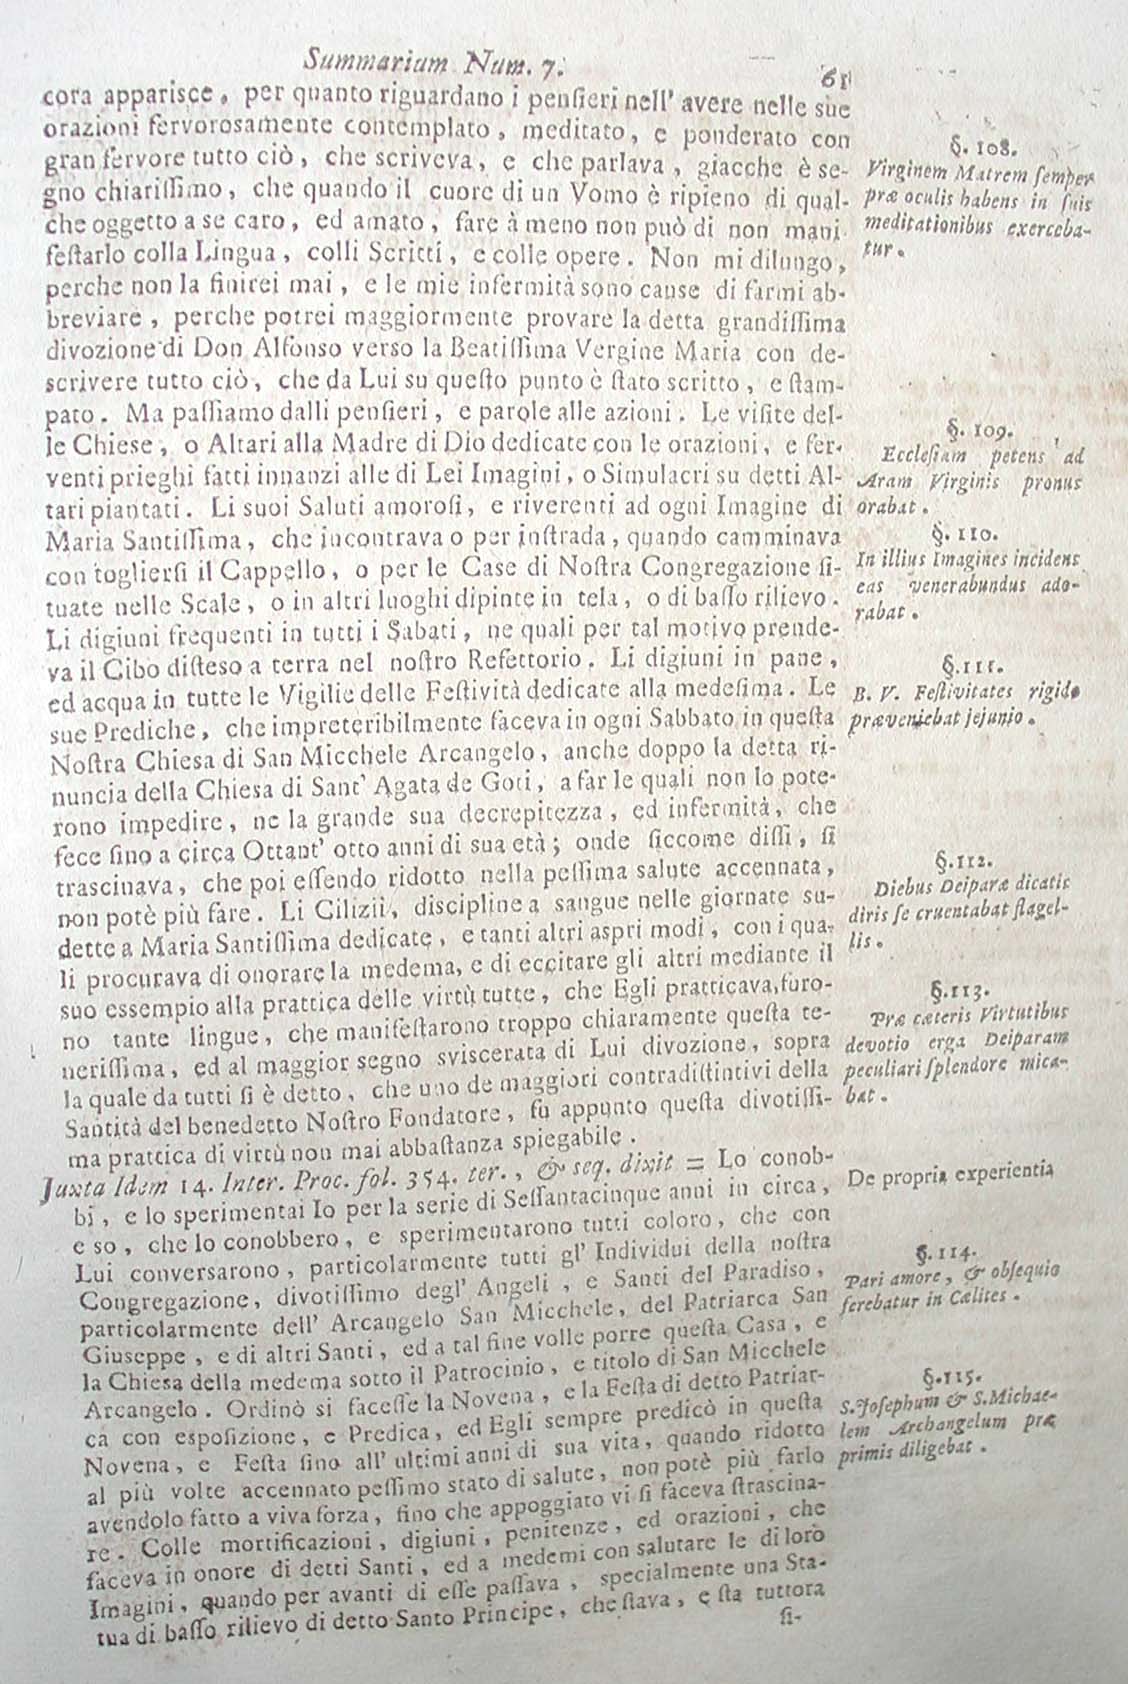 Summarium Num. 7.
61
cora apparisce, per quanto riguardano i penſieri nell' avere nelle sue
orazioni fervorosamente contemplato, meditato, e ponderato con
gran fervore tutto ciò, che scriveva, e che parlava, giacche è se-
gno chiariſſimo, che quando il cuore di un Vomo è ripieno di qual-
che oggetto a se caro, ed amato, fare à meno non può di non mani
feſtarlo colla Lingua, colli Scritti, e colle opere. Non mi dilungo,
perche non la finirei mai, e le mie infermità sono cause di farmi ab-
breviare, perche potrei maggiormente provare la detta grandiſſima
divozione di Don Alfonso verso la Beatiſſima Vergine Maria con de-
scrivere tutto ciò, che da Lui su queſto punto è ſtato scritto, e ſtam-
pato. Ma paſſiamo dalli penſieri, e parole alle azioni. Le viſite del-
le Chiese, o Altari alla Madre di Dio dedicate con le orazioni, e fer-
venti prieghi fatti innanzi alle di Lei Imagini, o Simulacri su detti Al-
tari piantati. Li suoi Saluti amoroſi, e riverenti ad ogni Imagine di
Maria Santiſſima, che incontrava o per inſtrada, quando camminava
con toglierſi il Cappello, o per le Case di Noſtra Congregazione ſi-
tuate nelle Scale, o in altri luoghi dipinte in tela, o di baſſo rilievo.
Li digiuni frequenti in tutti i Sabati, ne quali per tal motivo prende-
va il Cibo diſteso a terra nel noſtro Refettorio. Li digiuni in pane,
ed acqua in tutte le Vigilie delle Feſtività dedicate alla medeſima. Le
sue Prediche, che impreteribilmente faceva in ogni Sabbato in queſta
Noſtra Chiesa di San Micchele Arcangelo, anche doppo la detta ri-
nuncia della Chiesa di Sant' Agata de Goti, a far le quali non lo pote-
rono impedire, ne la grande sua decrepitezza, ed infermità, che
fece ſino a circa Ottant' otto anni di sua età; onde ſiccome diſſi, ſi
trascinava, che poi eſſendo ridotto nella peſſima salute accennata,
non potè più fare. Li Cilizii, discipline a sangue nelle giornate su-
dette a Maria Santiſſima dedicate, e tanti altri aspri modi, con i qua-
li procurava di onorare la medema, e di eccitare gli altri mediante il
suo essempio alla prattica delle virtù tutte, che Egli pratticava, furo-
no tante lingue, che manifeſtarono troppo chiaramente queſta te-
neriſſima, ed al maggior segno sviscerata di Lui divozione, sopra
la quale da tutti ſi è detto, che uno de maggiori contradiſtintivi della
Santità del benedetto Noſtro Fondatore, fù appunto queſta divotiſſi-
ma prattica di virtù non mai abbaſtanza spiegabile.
Juxta Idem 14. Inter. Proc. fol. 354. ter., & seq. dixit = Lo conob-
bi, e lo sperimentai Io per la serie di Seſſantacinque anni in circa,
e so, che lo conobbero, e sperimentarono tutti coloro, che con
Lui conversarono, particolarmente tutti gl' Individui della noſtra
Congregazione, divotiſſimo degl' Angeli, e Santi del Paradiso,
particolarmente dell' Arcangelo San Micchele, del Patriarca San
Giuseppe, e di altri Santi, ed a tal fine volle porre queſta Casa, e
la Chiesa della medema sotto il Patrocinio, e titolo di San Micchele
Arcangelo. Ordinò si faceſſe la Novena, e la Feſta di detto Patriar-
ca con espoſizione, e Predica, ed Egli sempre predicò in queſta
Novena, e Feſta ſino all' ultimi anni di sua vita, quando ridotto
al più volte accennato peſſimo stato di salute, non potè più farlo
avendolo fatto a viva forza, fino che appoggiato vi ſi faceva ſtrascina-
re. Colle mortificazioni, digiuni, penitenze, ed orazioni, che
faceva in onore di detti Santi, ed a medemi con salutare le di loro
Imagini, quando per avanti di eſſe paſſava, specialmente una Sta-
tua di baſſo rilievo di detto Santo Principe, che ſtava, e ſta tuttora
ſi-
§. 108.
Virginem Matrem ſemper
præ oculis habens in ſuis
meditationibus exerceba-
tur.
§. 109.
Eccleſiam petens ad
Aram Virginis pronus
orabat.
§. 110.
In illius Imagines incidens
eas venerabundus ado-
rabat.
§. 111.
B. V. Feſtivitates rigido
præveniebat jejunio.
§. 112.
Diebus Deiparæ dicatis
diris ſe cruentabat flagel-
lis.
§. 113.
Præ cæteris Virtutibus
devotio erga Deiparam
peculiari ſplendore mica-
bat.
De propria experientia
§. 114.
Pari amore, & obſequio
ferebatur in Cælites.
§. 115.
S. Joſephum & S. Michae-
lem Archangelum præ
primis diligebat.